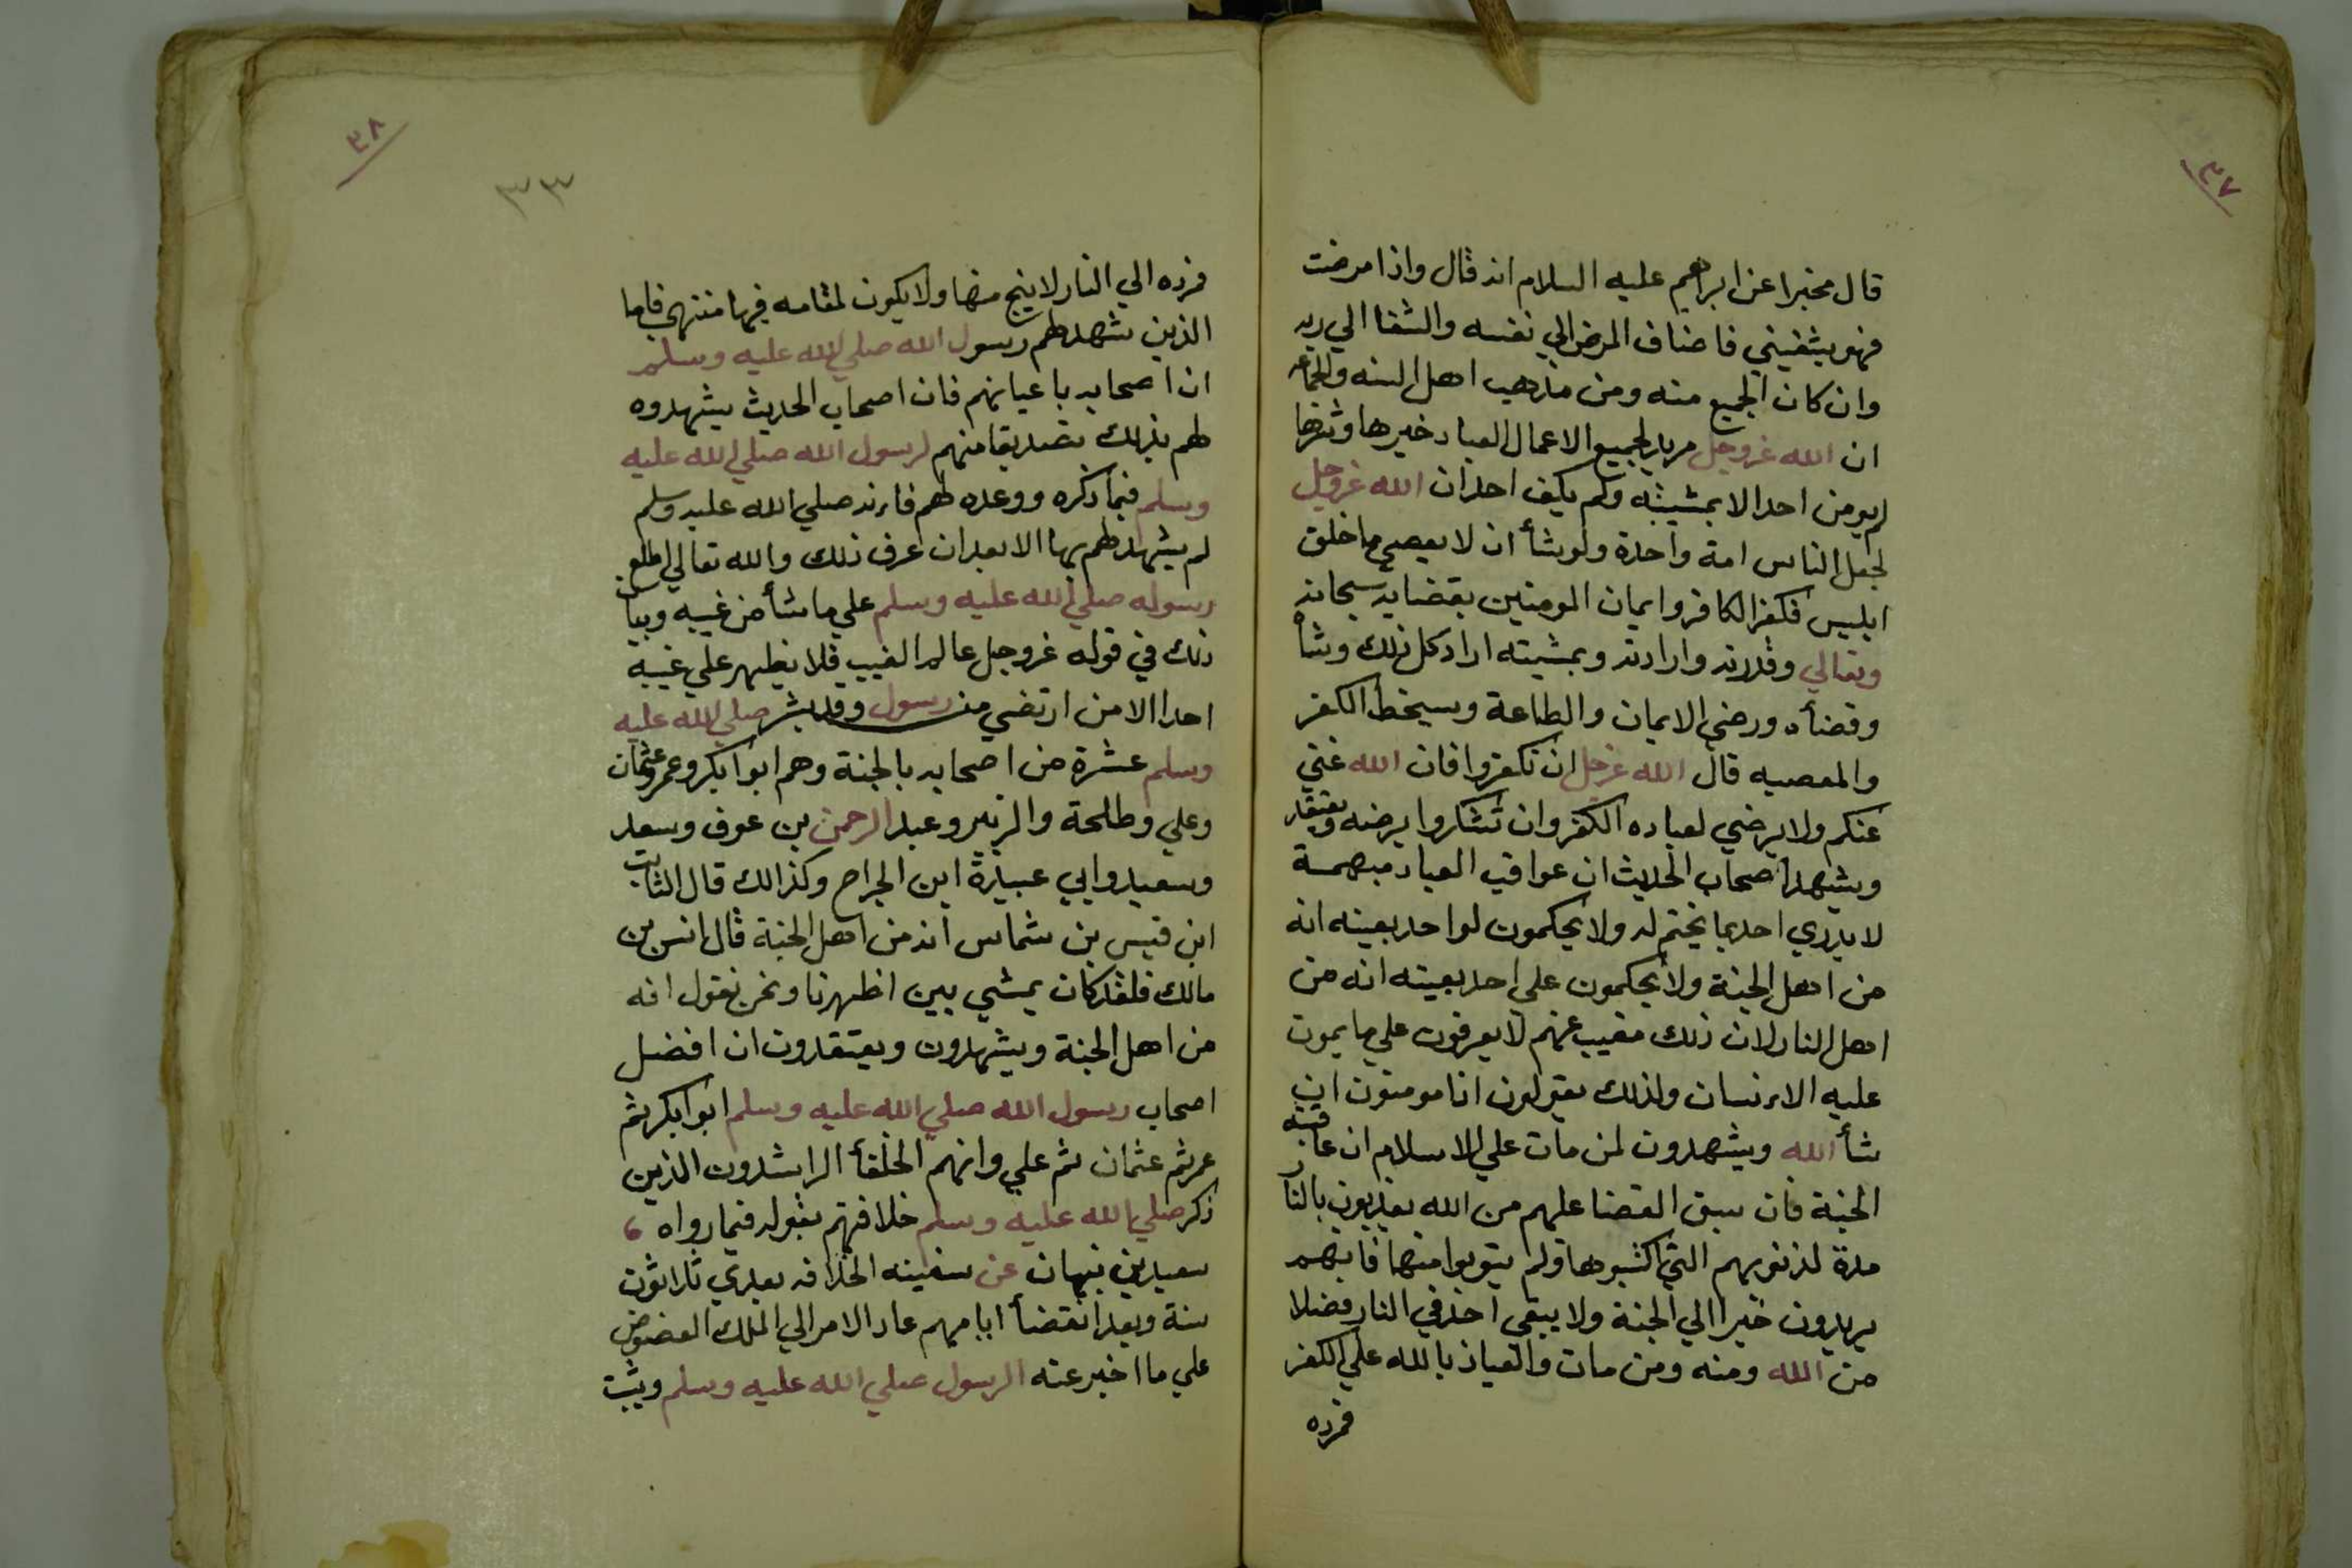 ٣٧
قال مخبرا عن ابراهيم عليه السلام انه قال واذا مرضت
فهو يشفيني فاضاف المرض الي نفسه والشفا الي ربه
وان كان الجميع منه ومن مذهب اهل السنه والجماعه
ان الله عزوجل مريد لجميع الاعمال العباد خيرها وشرها
لم يومن احد الا بمشيئته ولم يكفر احد ان الله عزوجل
لجعل الناس امة واحدة ولو يشأ ان لا يعصي ما خلق
ابليس فكفر الكافر وايمان المومنين بقضايه سبحانه
وتعالي وقدرته وارادته وبمشيته اراد كل ذلك وشأ
وقضأه ورضي الايمان والطاعة وسيخط الكفر
والمعصيه قال الله عزوجل ان تكفروا فان الله غني
عنكم ولا يرضي لعباده الكفر وان تشكروا يرضه ويعتقد
ويشهد اصحاب الحديث ان عواقب العباد مبهمة
لا يدري احد بما يختم له ولا يحكمون لواحد بعينه انه
من اهل الجنة ولا يحكمون علي احد بعينه انه من
اهل النار لان ذلك مغيب عنهم لا يعرفون علي ما يموت
عليه الانسان ولذلك يقولون انا مومنون ان
شأ الله ويشهدون لمن مات علي الاسلام ان عاقبته
الجنة فان سبق القضا عليهم من الله يعذبون بالنار
مدة لذنوبهم التي اكتسبوها ولم يتوبوا منها فانهم
يريدون خيرا الي الجنة ولا يبقي احد في النار فضلا
من الله ومنه ومن مات والعياذ بالله علي الكفر
فرده
٣٨
٣٣
فرده الي النار لا ينج منها ولا يكون لمقامه فيها منتهي فاما
الذين شهد لهم رسول الله صلي الله عليه وسلم
ان اصحابه باعيانهم فان اصحاب الحديث يشهدوه
لهم بذلك تصديقا منهم لرسول الله صلي الله عليه
وسلم فيما ذكره ووعده لهم فانه صلي الله عليه وسلم
لم يشهد لهم بها الا بعد ان عرف ذلك والله تعالي اطلع
رسوله صلي الله عليه وسلم علي ما شأ من غيبه وبيان
ذلك في قوله عزوجل عالم الغيب فلا يظهر علي غيبه
احدا الا من ارتضي من رسول وقد بشر صلي الله عليه
وسلم عشرة من اصحابه بالجنة وهم ابوا بكر وعمر وعثمان
وعلي وطلحة والزبير وعبد الرحمن بن عوف وسعد
وسعيد وابي عبيدة ابن الجراح وكذالك قال الثابت
ابن قيس بن شماس انه من اهل الجنة قال انس بن
مالك فلقد كان يمشي بين اظهرنا ونحن نقول انه
من اهل الجنة ويشهدون ويعتقدون ان افضل
اصحاب رسول الله صلي الله عليه وسلم ابوا بكر ثم
عمر ثم عثمان ثم علي وانهم الخلفأ الراشدون الذين
ذكر صلي الله عليه وسلم خلافتهم بقوله فيما رواه ،
سعيد بن نبهان عن سفينه الخلافه بعدي ثلاثون
سنة وبعد انقضأ ايامهم عاد الامر الي الملك العضوض
علي ما اخبر عنه الرسول صلي الله عليه وسلم ويثبت